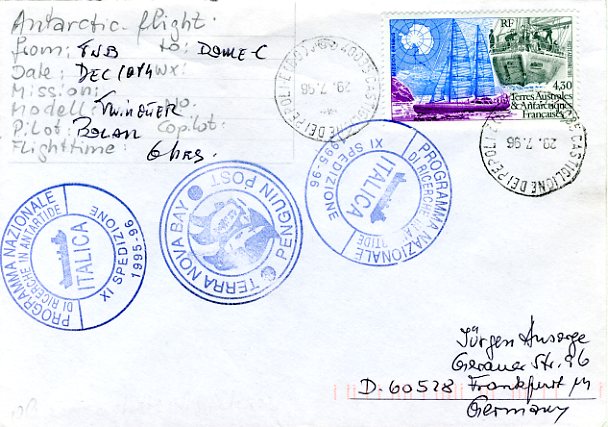 Antarctic-flight
From: TNB to: DOME-C
Date: DEC 18th WX:
Mission:
Modell: TWINOTTER No:
Pilot: BOLAN Copilot:
Flighttime: 6 hrs.
40035 CASTIGLIONE DEI PEPOLI (BO)
29.7.96
RF
4,30
Terres Australes
& Antarctiques
Françaises
CASTIGLIONE DEI PEPOLI
29.7.96
PROGRAMMA NAZIONALE
DI RICERCHE IN ANTARTIDE
ITALICA
XI SPEDIZIONE
1995-96
PENGUIN POST
TERRA NOVA BAY
PROGRAMMA NAZIONALE
DI RICERCHE IN ANTARTIDE
ITALICA
XI SPEDIZIONE
1995-96
Jürgen Ansorge
Gerauer Str. 96
D-60528 Frankfurt M
Germany